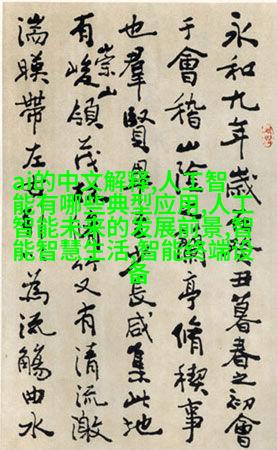 永和九年歲丑暮春之初會
于會稽山陰蘭亭脩稧事
也羣賢長咸集此地
有崇山峻領茂又有清流激
湍暎帶左為流觴曲水
ai的中文解释,人工智
能有哪些典型应用,人工
智能未来的发展前景,智
能智慧生活,智能终端设
备